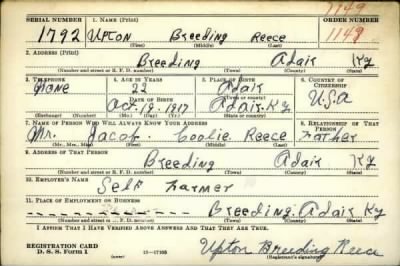 1149
SERIAL NUMBER 1. NAME (Print) ORDER NUMBER
1792 Upton Breeding Reece 1149
(First) (Middle) (Last)
2. ADDRESS (Print)
Breeding Adair Ky
(Number and street or R. F. D. number) (Town) (County) (State)
3. TELEPHONE 4. AGE IN YEARS 5. PLACE OF BIRTH 6. COUNTRY OF CITIZENSHIP
None 22 Adair
DATE OF BIRTH
Oct. 19. 1917 Adair. Ky U.S.A
(Exchange) (Number) (Mo.) (Day) (Yr.) (State or country)
7. NAME OF PERSON WHO WILL ALWAYS KNOW YOUR ADDRESS 8. RELATIONSHIP OF THAT PERSON
Mr. Jacob. Coolie Reece Father
(Mr., Mrs., Miss) (First) (Middle) (Last)
9. ADDRESS OF THAT PERSON
Breeding Adair Ky
(Number and street or R. F. D. number) (Town) (County) (State)
10. EMPLOYER'S NAME
Self Farmer
11. PLACE OF EMPLOYMENT OR BUSINESS
Breeding. Adair Ky
(Number and street or R. F. D. number) (Town) (County) (State)
I AFFIRM THAT I HAVE VERIFIED ABOVE ANSWERS AND THAT THEY ARE TRUE.
REGISTRATION CARD
D. S. S. Form 1 Upton Breeding Reece
(over) (Registrant's signature)